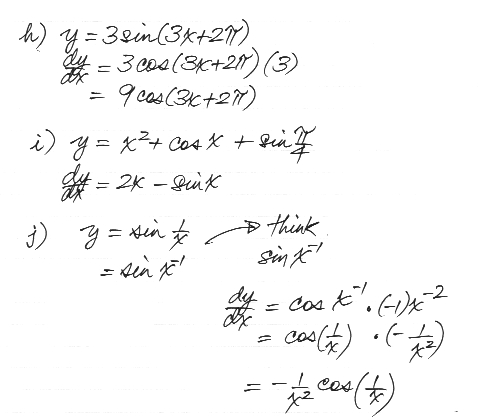 h) y = 3 sin(3x+2π)
dy/dx = 3 cos(3x+2π)(3)
= 9 cos(3x+2π)
i) y = x² + cos x + sin π/4
dy/dx = 2x - sin x
j) y = sin 1/x → think
= sin x⁻¹ sin x⁻¹
dy/dx = cos x⁻¹ · (-1)x⁻²
= cos(1/x) · (-1/x²)
= -1/x² cos(1/x)